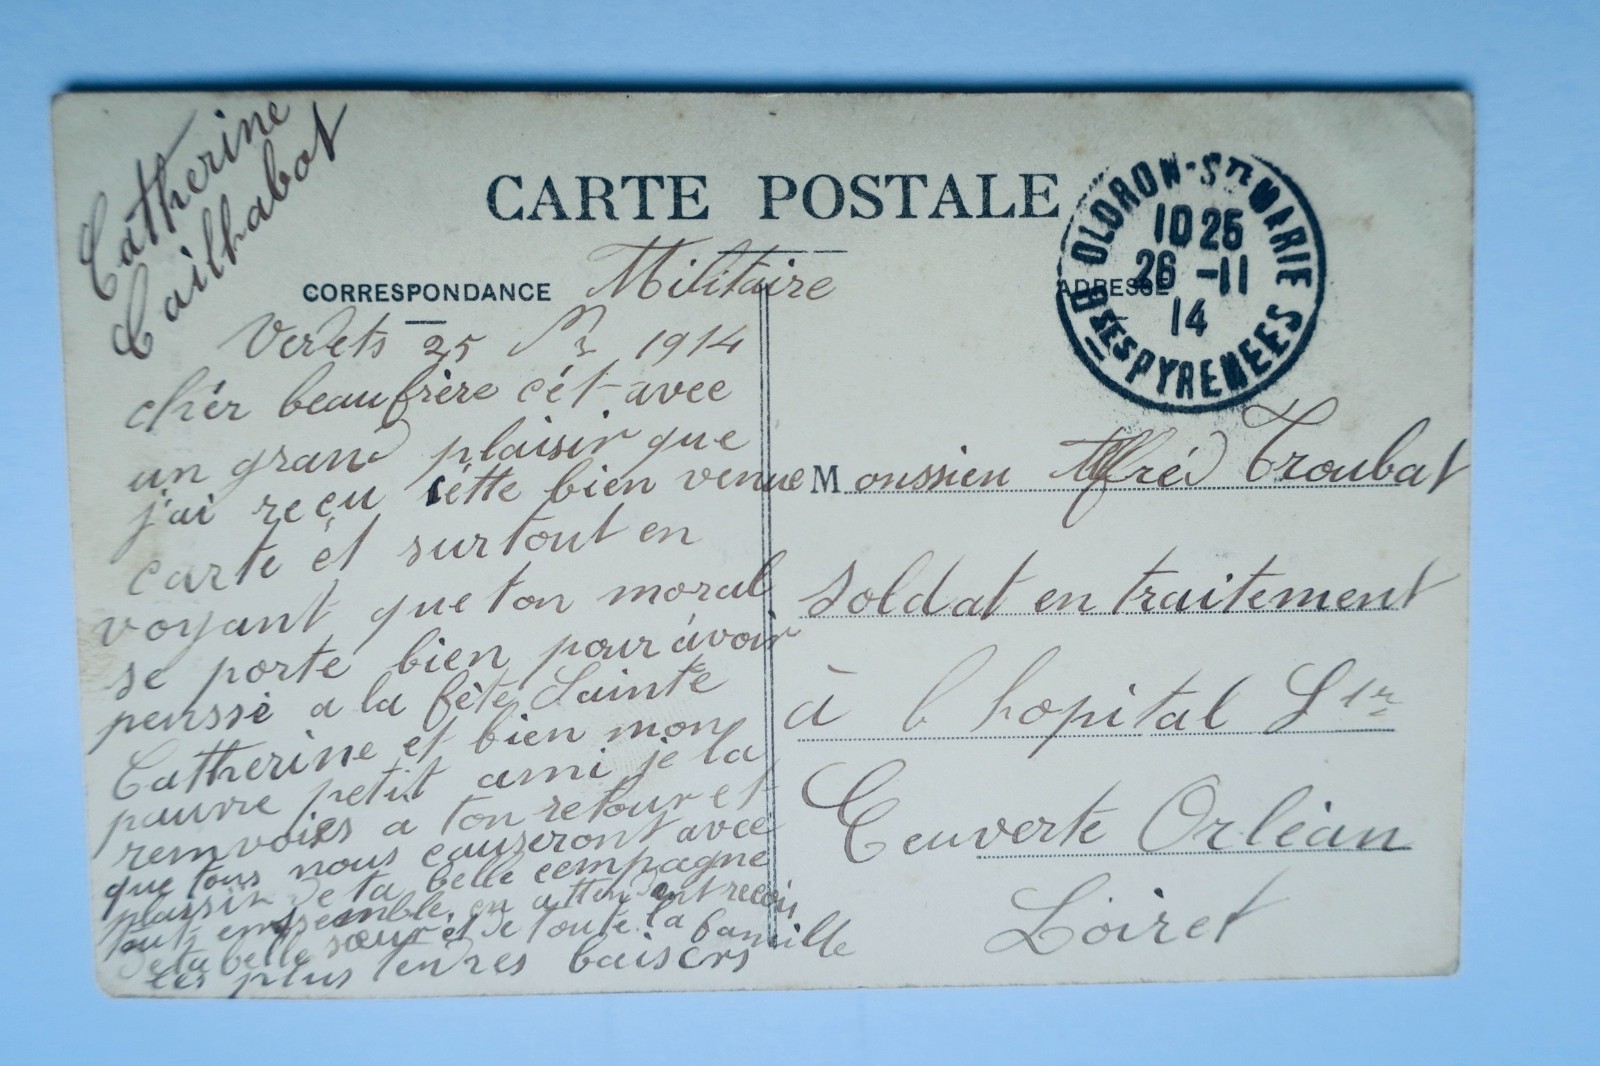 Catherine
Cailhabot
CARTE POSTALE
CORRESPONDANCE Militaire
ADRESSE
OLORON-Ste MARIE
10 25
26 -11
14
Bses PYRENEES
Verdets 25 1914
chér beaufrère cét-avec
un grand plaisir que
j'ai reçu cétte bien venue
carte ét surtout en
voyant que ton moral
se porte bien pour avoir
penssé a la fète Sainte
Catherine et bien mon
pauvre petit ami je la
remvoies a ton retour et
que tous nous causeront avec
plaissir de ta belle compagne
tout enssemble, en attendent recois
de ta belle sœur et de toute la famille
les plus tendres baisers
Monssieu Alfréd Troubat
soldat en traitement
à l hopital Ste
Ceuverte Orléan
Loiret